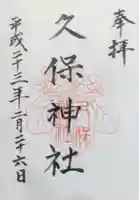 奉拝
久保神社
平成二十三年二月二十六日